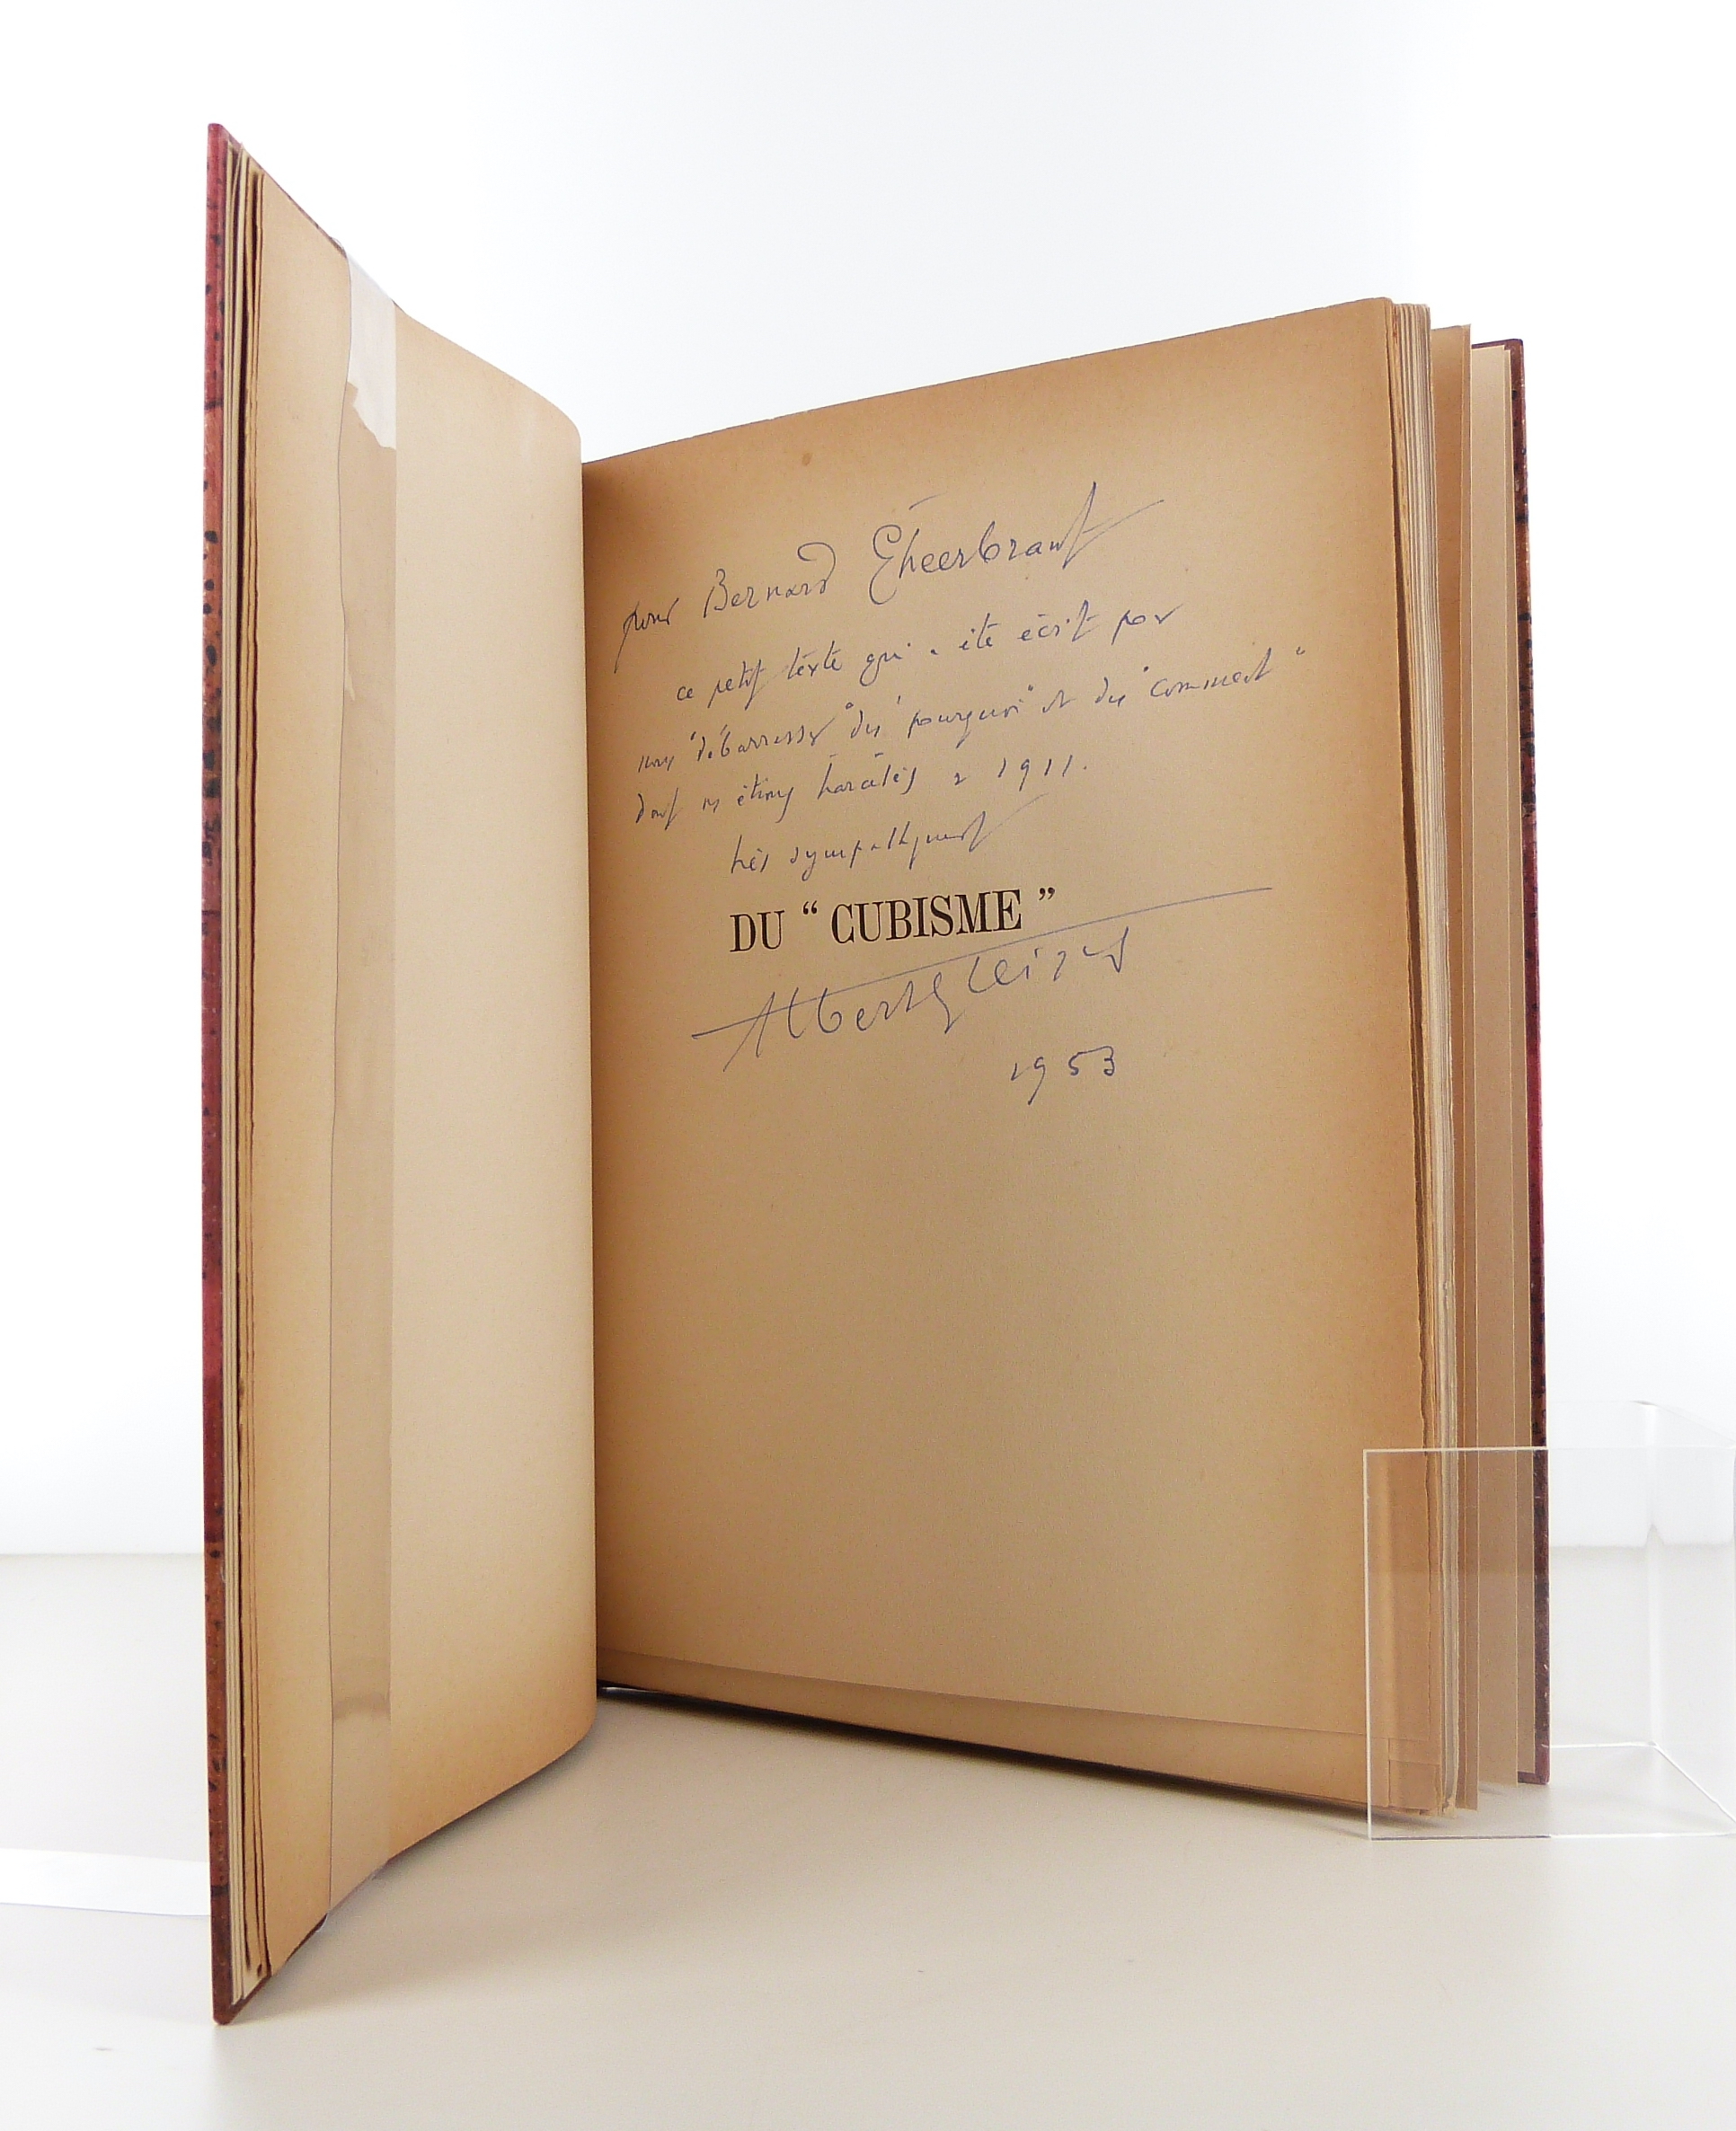 pour Bernard Gheerbrant
ce petit texte qui a été écrit pour
nous "débarrasser" des "pourquoi" et des "comment"
dont ns étions harcelés en 1911.
très sympathiquement
DU “ CUBISME ”
Albert Gleizes
1953